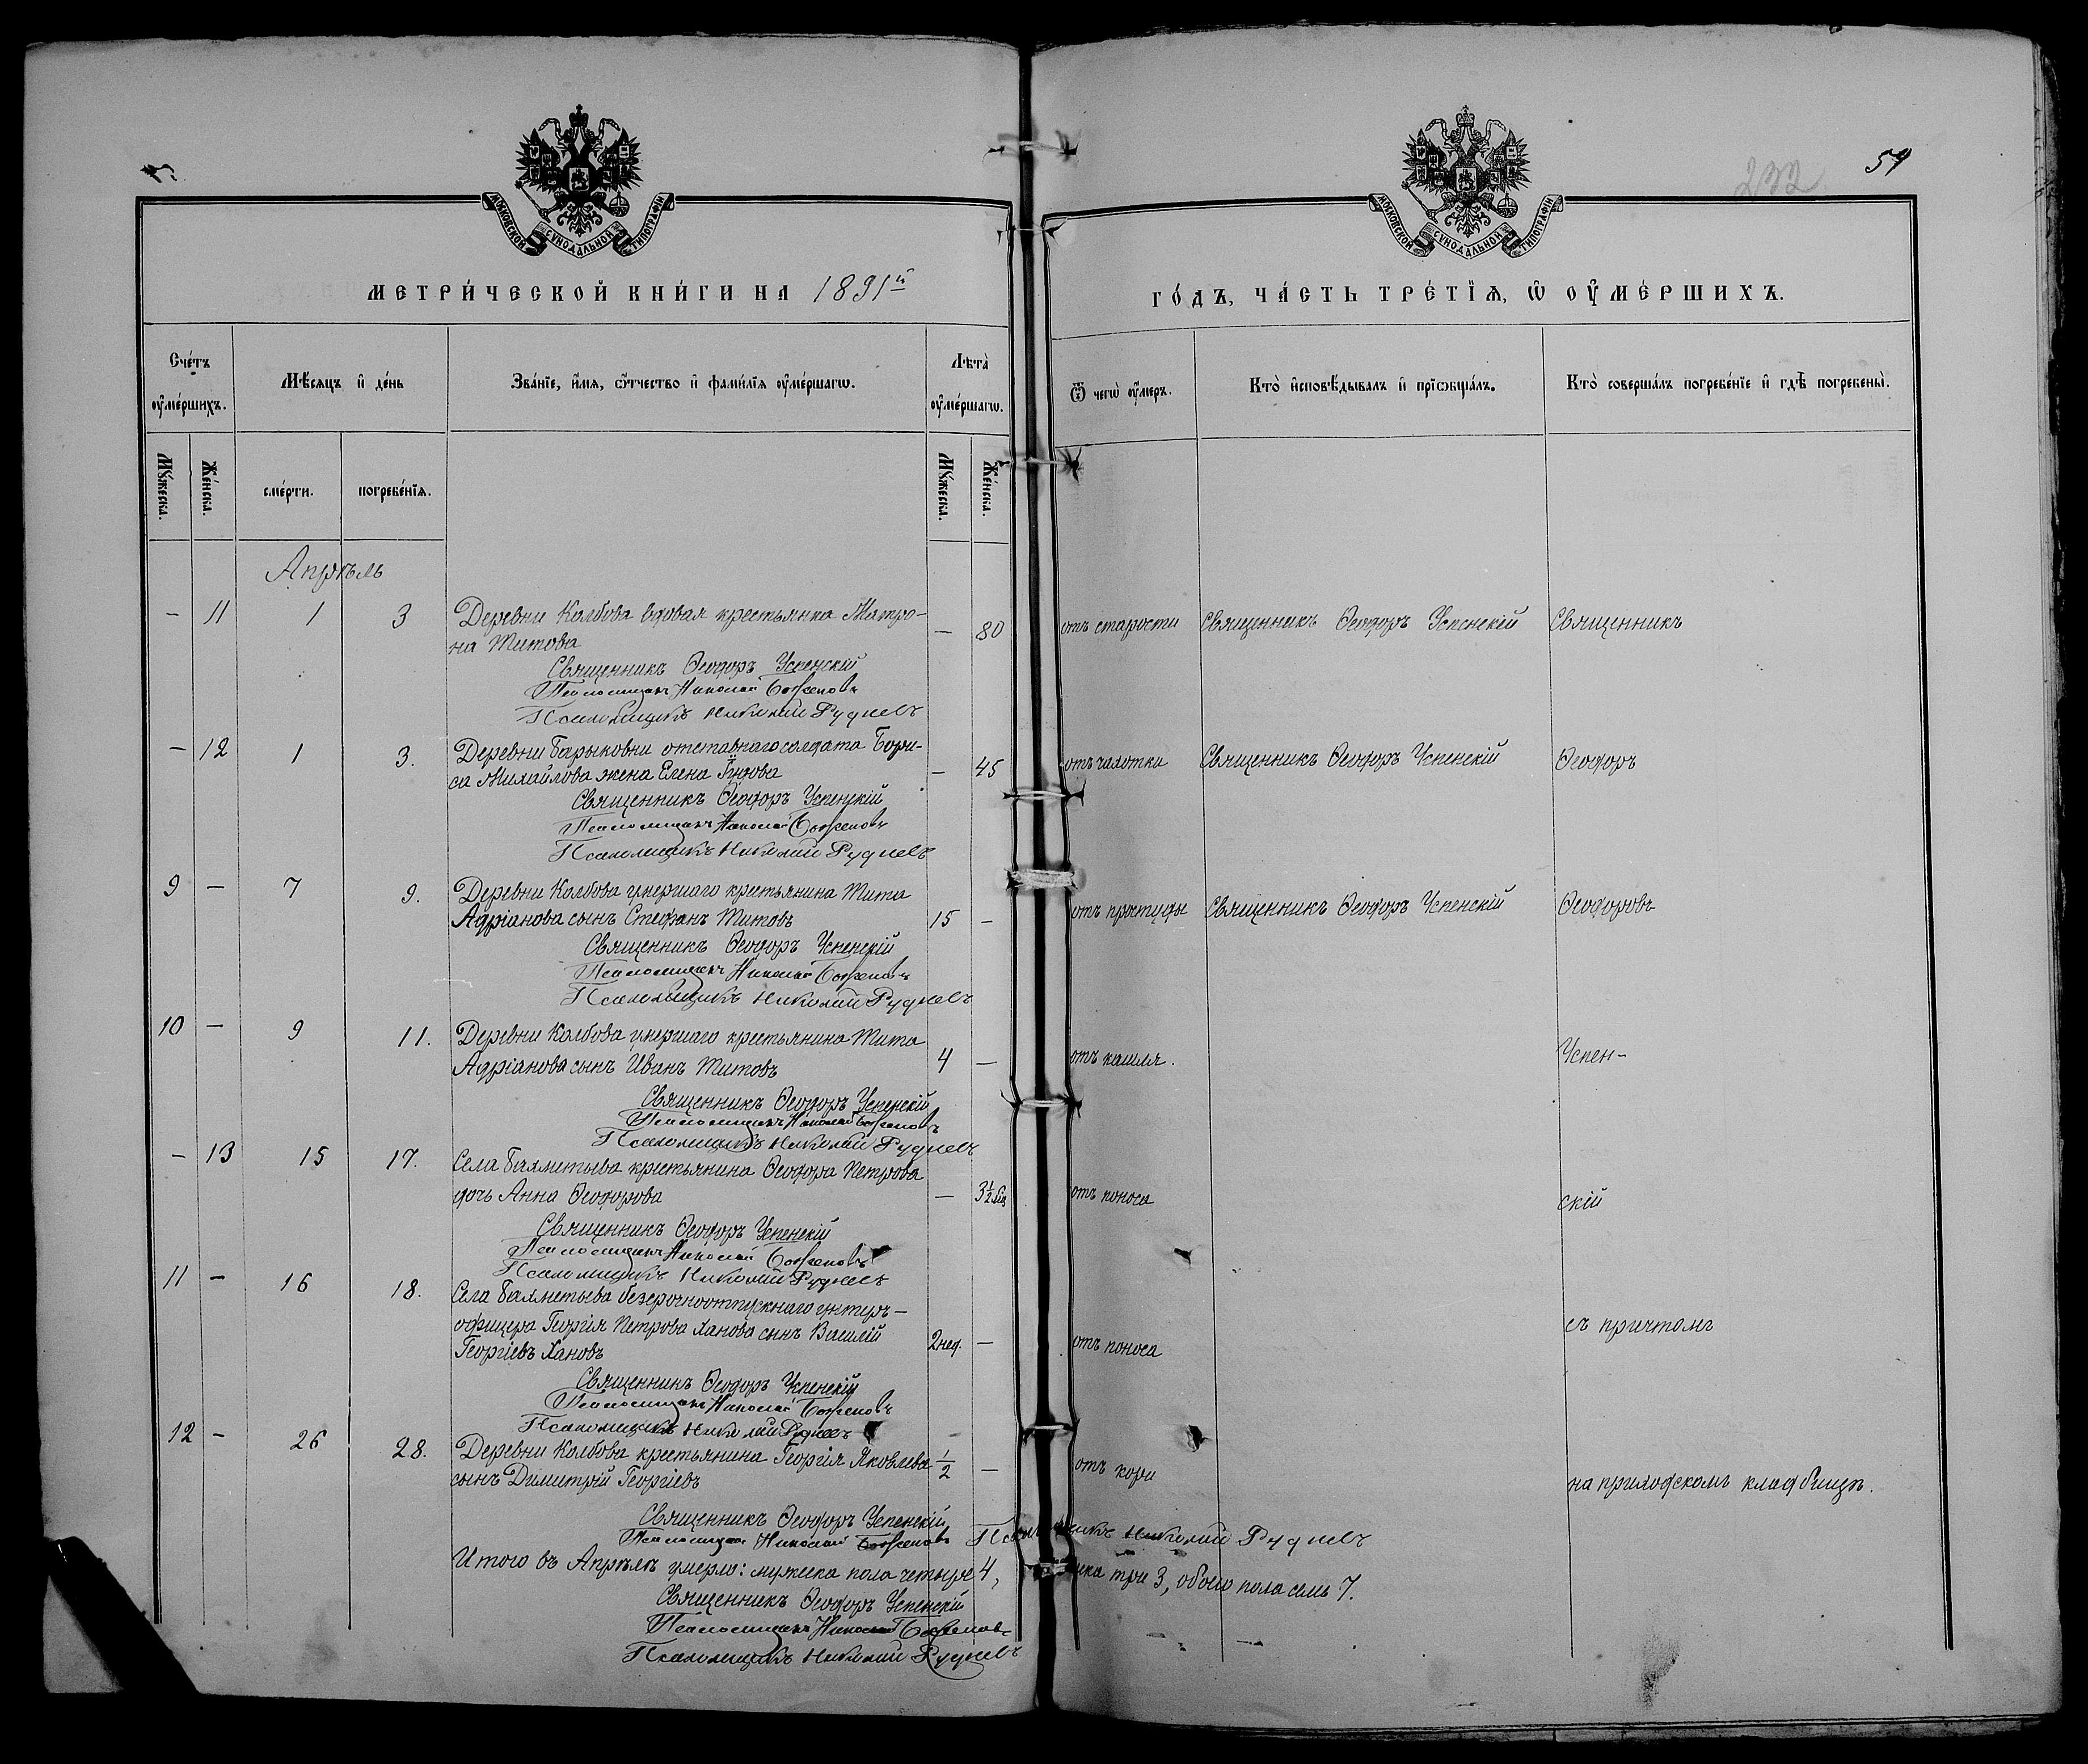 59
232
МОСКОВСКОЙ СѴНОДАЛЬНОЙ ТИПОГРАФІИ
МОСКОВСКОЙ СѴНОДАЛЬНОЙ ТИПОГРАФІИ
МЕТРИ́ЧЕСКОЙ КНИ́ГИ НА 1891й
ГО́ДЪ, ЧА́СТЬ ТРЕ́ТІѦ, Ѿ ОУ҆МЕ́РШИХЪ.
Сче́тъ оу҆ме́ршихъ.
Мѣ́сяцъ и҆ де́нь
Зва́нїе, и҆́мя, ѻ҆́тчество и҆ фами́лїя оу҆ме́ршагѡ.
Лѣ́та оу҆ме́ршагѡ.
Ѿ чегѡ̀ оу҆́меръ.
Кто̀ и҆сповѣ́дывалъ и҆ прїѡбща́лъ.
Кто̀ соверша́лъ погребе́нїе и҆ гдѣ̀ погребены̀.
Мꙋ́жеска.
Же́нска.
сме́рти.
погребе́нїя.
Мꙋ́жеска.
Же́нска.
Апрѣль
— 11 1 3 Деревни Колбова вдовая крестьянка Матро-
на Титова — 80 отъ старости Священникъ Ѳеодоръ Успенскій Священникъ
Священникъ Ѳеодоръ Успенскій
Псаломщикъ Николай
Псаломщикъ Николай Рудневъ
— 12 1 3. Деревни Барыковки отставнаго солдата Бори-
са Михайлова жена Елена — 45 отъ чахотки Священникъ Ѳеодоръ Успенскій Ѳеодоръ
Священникъ Ѳеодоръ Успенскій
Псаломщикъ Николай
Псаломщикъ Николай Рудневъ
9 — 7 9. Деревни Колбова умершаго крестьянина Тита
Адріанова сынъ Стефанъ Титовъ 15 — отъ простуды Священникъ Ѳеодоръ Успенскій Ѳеодоровъ
Священникъ Ѳеодоръ Успенскій
Псаломщикъ Николай
Псаломщикъ Николай Рудневъ
10 — 9 11. Деревни Колбова умершаго крестьянина Тита
Адріанова сынъ Иванъ Титовъ 4 — отъ кашля. Успен-
Священникъ Ѳеодоръ Успенскій
Псаломщикъ Николай
Псаломщикъ Николай Рудневъ
— 13 15 17. Села Бахметьева крестьянина Ѳеодора Петрова
дочь Анна Ѳеодорова — 3½ отъ поноса скій
Священникъ Ѳеодоръ Успенскій
Псаломщикъ Николай
Псаломщикъ Николай Рудневъ
11 — 16 18. Села Бахметьева безсрочноотпускнаго унтеръ-
офицера Георгія Петрова Ханова сынъ Василій
Георгіевъ Хановъ 2нед. — отъ поноса съ причтомъ
Священникъ Ѳеодоръ Успенскій
Псаломщикъ Николай
Псаломщикъ Николай Рудневъ
12 — 26 28. Деревни Колбова крестьянина Георгія Яковлева
сынъ Димитрій Георгіевъ ½ — отъ кори на приходскомъ кладбищѣ.
Священникъ Ѳеодоръ Успенскій
Псаломщикъ Николай Псаломщикъ Николай Рудневъ
Итого въ Апрѣлѣ умерло: мужеска пола четыре 4, три 3, обоего пола семь 7.
Священникъ Ѳеодоръ Успенскій
Псаломщикъ Николай
Псаломщикъ Николай Рудневъ